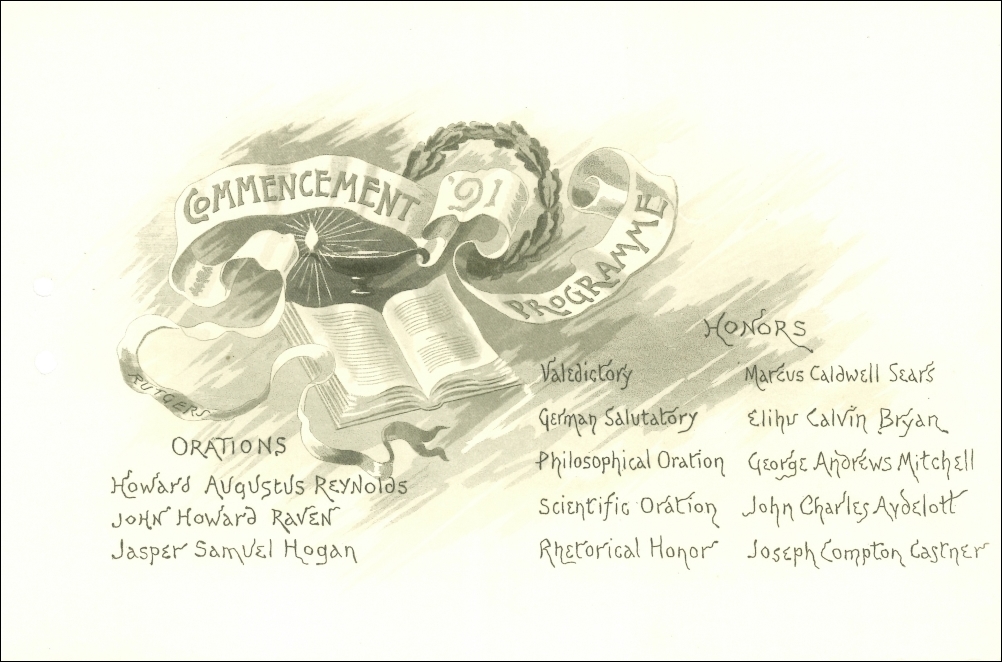 COMMENCEMENT
'91
PROGRAMME
RUTGERS
ORATIONS
Howard Augustus Reynolds
John Howard Raven
Jasper Samuel Hogan
HONORS
Valedictory Marcus Caldwell Sears
German Salutatory Elihu Calvin Bryan
Philosophical Oration George Andrews Mitchell
Scientific Oration John Charles Aydelott
Rhetorical Honor Joseph Compton Castner